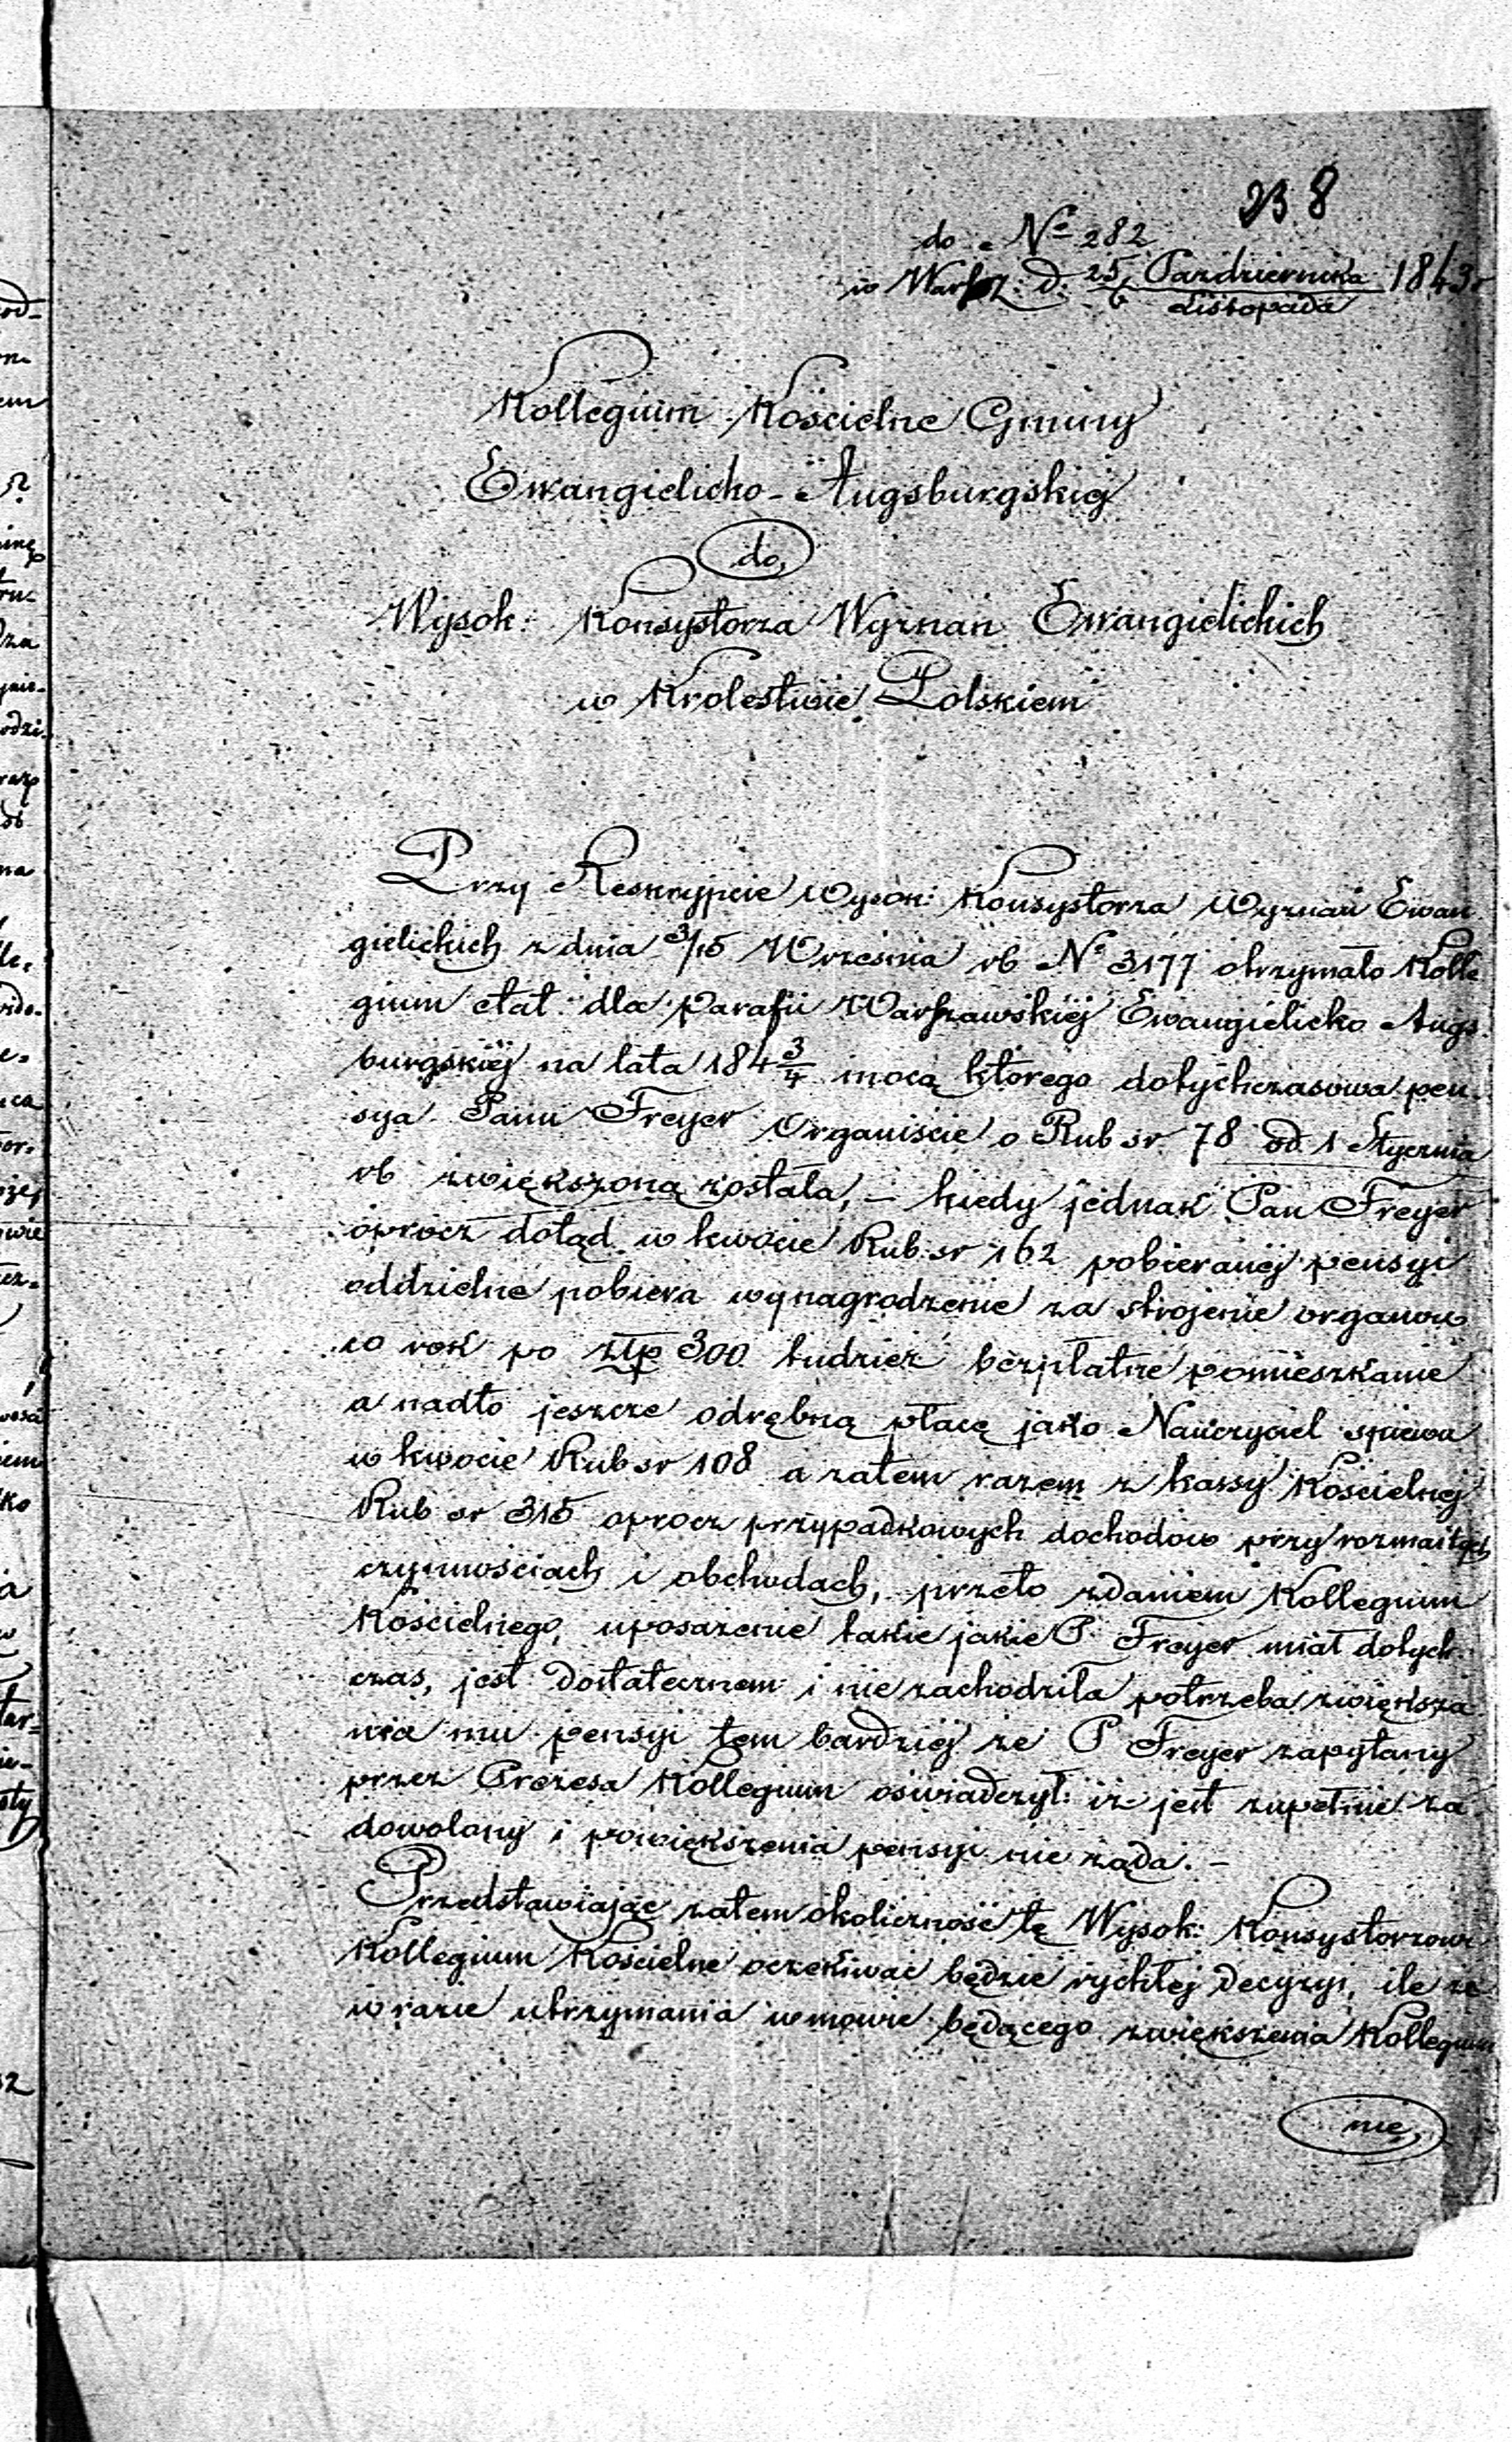 238
do No 282
w Warsz: d: 25/6 Pazdziernika/Listopada 1843 r
Kollegium Kościelne Gminy
Ewangielicko-Augsburgskiéj
do,
Wysok: Konsystorza Wyznań Ewangielickich
w Krolestwie Polskiem
Przy Reskrypcie Wysok: Konsystorza Wyznań Ewan
gielickich z dnia 3/15 Wrzesnia rb No 3177 otrzymało Kolle
gium etat dla Parafii Warszawskiéj Ewangielicko Augs
burgskiéj na lata 184 3/4 mocą ktorego dotychczasowa pen
sya Panu Freyer Organiście o Rub sr 78 od 1 Stycznia
rb zwiększoną została, – kiedy jednak Pan Freyer
oprocz dotąd w kwocie Rub sr 162 pobieranéj pensyi
oddzielne pobiera wynagrodzenie za strojenie organow
co rok po złp 300 tudzież bezpłatne pomieszkanie
a nadto jeszcze odrębną płacę jako Nauczyciel spiewu
w kwocie Rub sr 108 a zatem razem z kassy Kościelnéj
Rub sr 315 oprocz przypadkowych dochodow przy rozmaitych
czynnościach i obchodach, przeto zdaniem Kollegium
Kościelnego, uposazenie takie jakie P Freyer miał dotych
czas, jest dostatecznem i nie zachodziła potrzeba zwiększa
nia mu pensyi tem bardziéj ze P Freyer zapytany
przez Prezesa Kollegium oswiadczył: iz jest zupełnie za
dowolony i powiększenia pensyi nie ząda. –
Przedstawiając zatem okoliczność tę Wysok: Konsystorzowi
Kollegium Kościelne oczekiwać będzie rychłej decyzyi, ile ze
w razie utrzymania w mowie będącego zwiększenia Kollegium
nie,